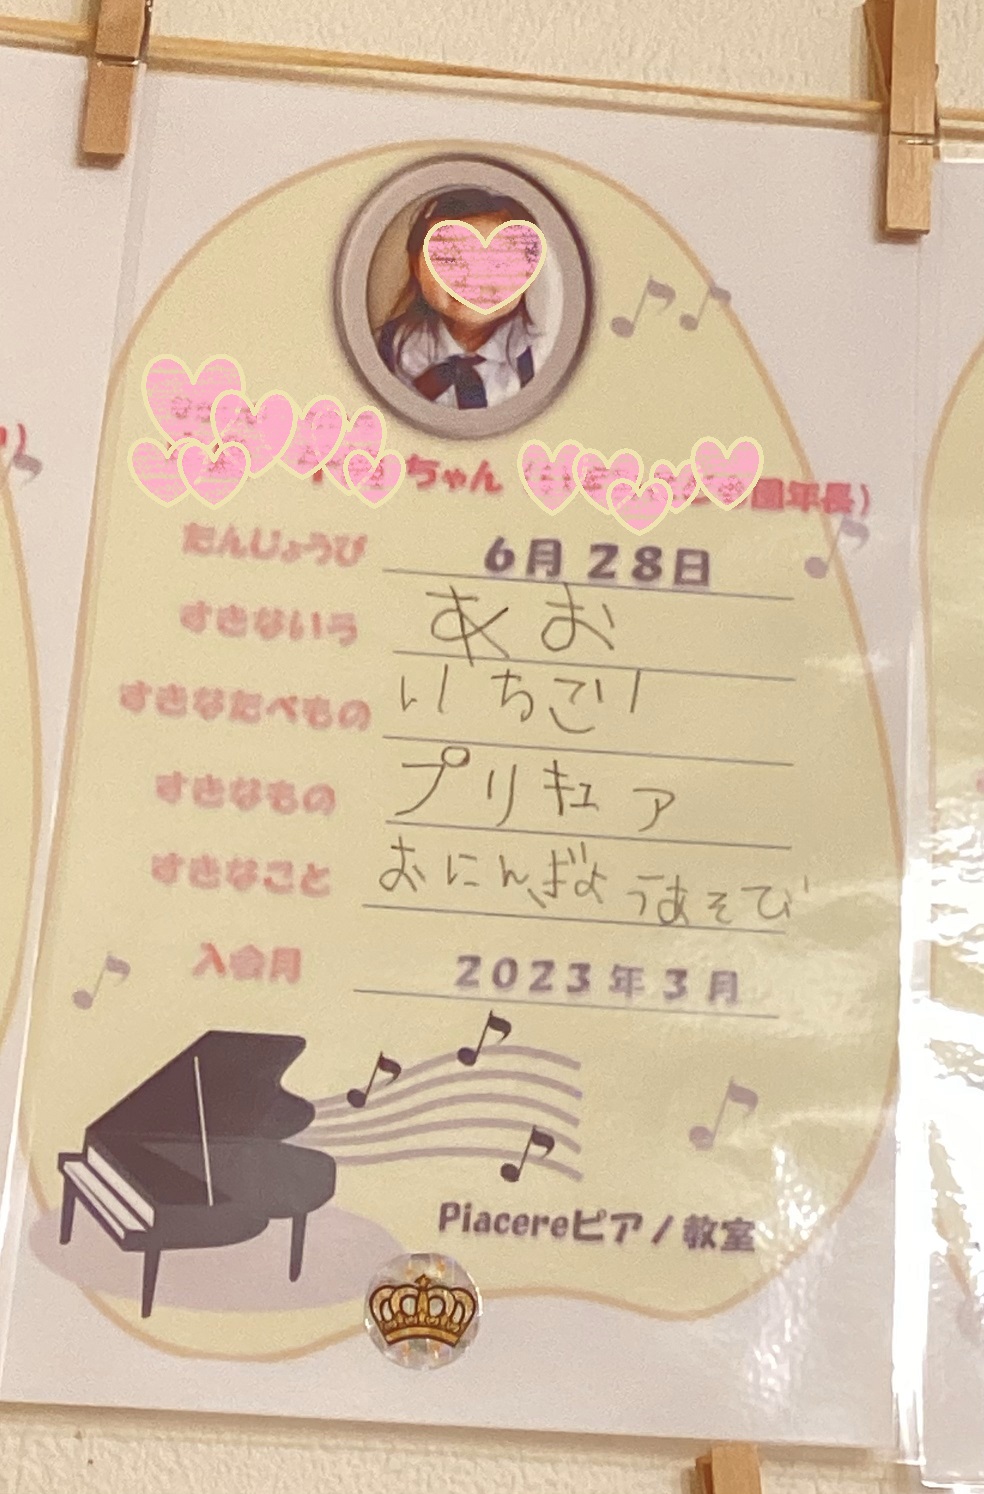 ちゃん 園年長)
たんじょうび 6月28日
すきないろ あお
すきなたべもの いちご
すきなもの プリキュア
すきなこと おにんぎょうあそび
入会月 2023年3月
Piacereピアノ教室